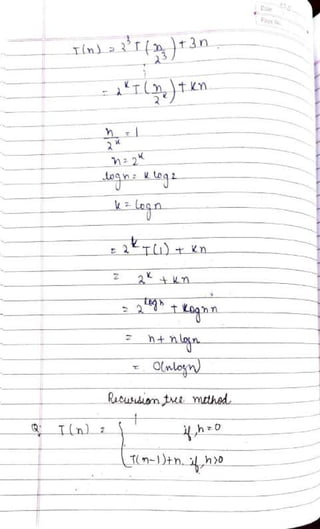 T(n) = 2³T(n/2³) + 3n
⋮
= 2ᵏT(n/2ᵏ) + kn
n/2ᵏ = 1
n = 2ᵏ
logn = k log2
k = logn
= 2ᵏT(1) + kn
= 2ᵏ + kn
= 2^logn + lognn
= n + nlogn
= O(nlogn)
Recursion tree method
Q: T(n) = { 1 if, n=0
T(n-1)+n, if, n>0